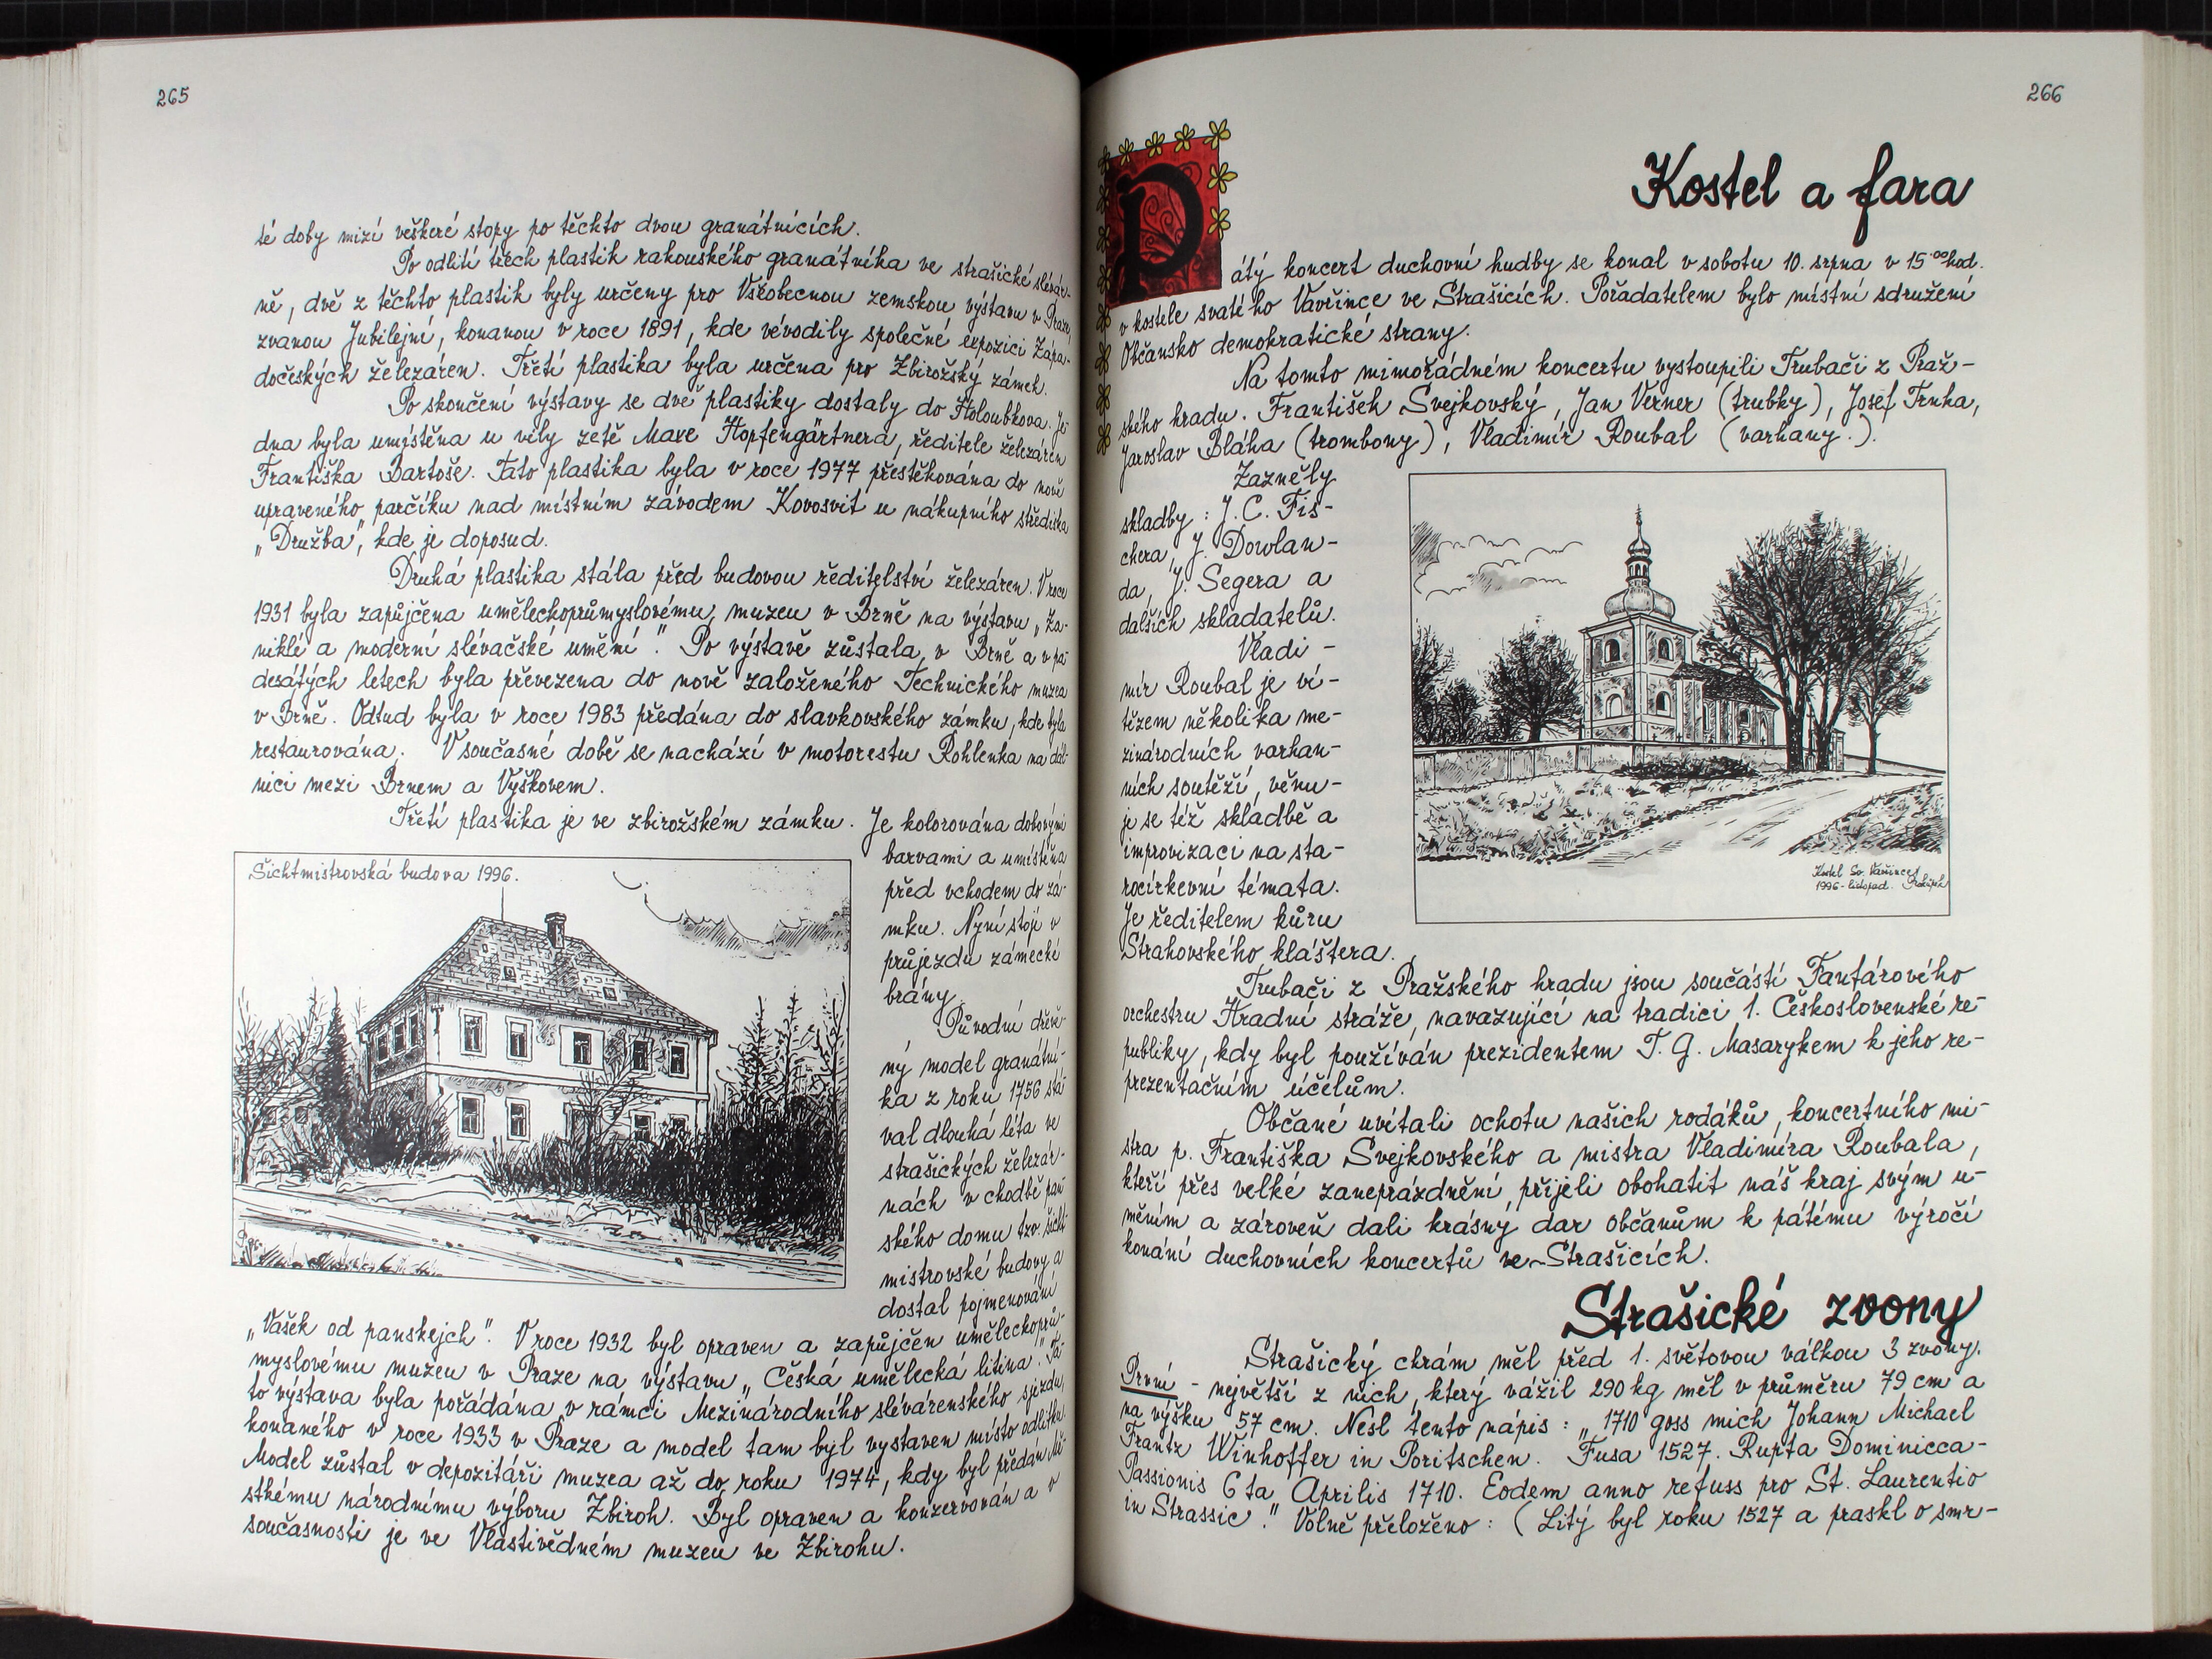 265
té doby mizí veškeré stopy po těchto dvou granátnících.
Po odlití třech plastik rakouského granátníka ve strašické slévár-
ně, dvě z těchto plastik byly určeny pro Všeobecnou zemskou výstavu v Praze,
zvanou Jubilejní, konanou v roce 1891, kde vévodily společné expozici Zápa-
dočeských železáren. Třetí plastika byla určena pro Zbirožský zámek.
Po skončení výstavy se dvě plastiky dostaly do Holoubkova. Je-
dna byla umístěna u vily zetě Maxe Hopfengärtnera, ředitele železáren
Františka Bartoše. Tato plastika byla v roce 1977 přestěhována do nově
upraveného parčíku nad místním závodem Kovosvit u nákupního střediska
„Družba", kde je doposud.
Druhá plastika stála před budovou ředitelství železáren. V roce
1931 byla zapůjčena uměleckoprůmyslovému muzeu v Brně na výstavu „Za-
niklé a moderní slévačské umění". Po výstavě zůstala v Brně a v pa-
desátých letech byla převezena do nově založeného Technického muzea
v Brně. Odtud byla v roce 1983 předána do slavkovského zámku, kde byla
restaurována. V současné době se nachází v motorestu Rohlenka na dál-
nici mezi Brnem a Vyškovem.
Třetí plastika je ve zbirožském zámku. Je kolorována dobovými
barvami a umístěna
před vchodem do zá-
mku. Nyní stojí v
průjezdu zámecké
brány.
Původní dřevě-
ný model granátní-
ka z roku 1756 stá-
val dlouhá léta ve
strašických železár-
nách v chodbě pan-
ského domu tzv. šicht-
mistrovské budovy a
dostal pojmenování
Šichtmistrovská budova 1996.
„Vašek od panskejch". V roce 1932 byl opraven a zapůjčen uměleckoprů-
myslovému muzeu v Praze na výstavu „Česká umělecká litina". Ta-
to výstava byla pořádána v rámci Mezinárodního slévárenského sjezdu,
konaného v roce 1933 v Praze a model tam byl vystaven místo odlitku.
Model zůstal v depozitáři muzea až do roku 1974, kdy byl předán Mě-
stkému národnímu výboru Zbiroh. Byl opraven a konzervován a v
současnosti je ve Vlastivědném muzeu ve Zbirohu.
266
Kostel a fara
Pátý koncert duchovní hudby se konal v sobotu 10. srpna v 15.⁰⁰ hod.
v kostele svatého Vavřince ve Strašicích. Pořadatelem bylo místní sdružení
Občansko demokratické strany.
Na tomto mimořádném koncertu vystoupili Trubači z Praž-
ského hradu. František Svejkovský, Jan Verner (trubky), Josef Trnka,
Jaroslav Bláha (trombony), Vladimír Roubal (varhany.).
Zazněly
skladby : J. C. Fis-
chera, J. Dowlan-
da, J. Segera a
dalších skladatelů.
Vladi-
mír Roubal je ví-
tězem několika me-
zinárodních varhan-
ních soutěží, věnu-
je se též skladbě a
improvizaci na sta-
rocírkevní témata.
Je ředitelem kůru
Strahovského kláštera.
Kostel Sv. Vavřince
1996 - listopad.
Trubači z Pražského hradu jsou součástí Fanfárového
orchestru Hradní stráže, navazující na tradici 1. Československé re-
publiky, kdy byl používán prezidentem T. G. Masarykem k jeho re-
prezentačním účelům.
Občané uvítali ochotu našich rodáků, koncertního mi-
stra p. Františka Svejkovského a mistra Vladimíra Roubala,
kteří přes velké zaneprázdnění přijeli obohatit náš kraj svým u-
měním a zároveň dali krásný dar občanům k pátému výročí
konání duchovních koncertů ve Strašicích.
Strašické zvony
Strašický chrám měl před 1. světovou válkou 3 zvony.
První - největší z nich, který vážil 290 kg měl v průměru 79 cm a
na výšku 57 cm. Nesl tento nápis : „1710 goss mich Johann Michael
Frantz Winhoffer in Poritschen. Fusa 1527. Rupta Dominicca-
Passionis 6 ta Aprilis 1710. Eodem anno refuss pro St. Laurentio
in Strassic." Volně přeloženo : (Litý byl roku 1527 a praskl o smr-